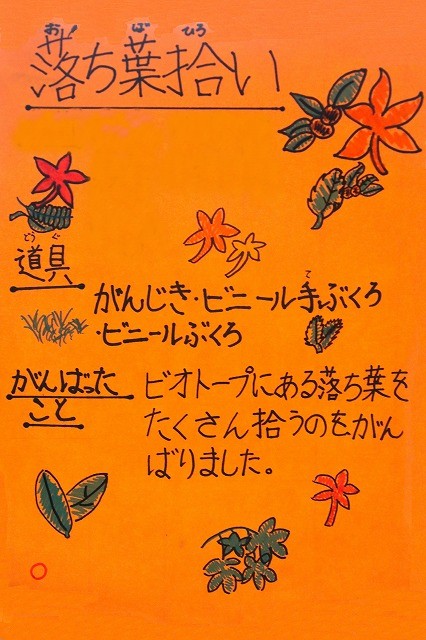 落ち葉拾い
道具
がんじき・ビニール手ぶくろ
・ビニールぶくろ
がんばった
こと
ビオトープにある落ち葉を
たくさん拾うのをがん
ばりました。